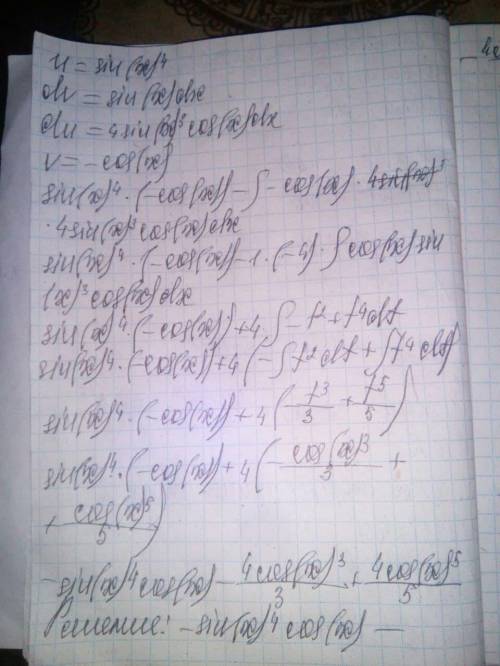 u = sin(x)⁴
dv = sin(x)dx
du = 4sin(x)³ cos(x)dx
v = -cos(x)
sin(x)⁴ · (-cos(x)) - ∫ -cos(x) · 4sin(x)³
· 4sin(x)³ cos(x)dx
sin(x)⁴ · (-cos(x)) - 1 · (-4) · ∫ cos(x) sin
(x)³ cos(x)dx
sin(x)⁴ · (-cos(x)) + 4 ∫ -t² + t⁴dt
sin(x)⁴ · (-cos(x)) + 4 (-∫ t² dt + ∫ t⁴ dt)
sin(x)⁴ · (-cos(x)) + 4 (-t³/3 + t⁵/5)
sin(x)⁴ · (-cos(x)) + 4 (-cos(x)³/3 +
+ cos(x)⁵/5)
-sin(x)⁴ cos(x) - 4cos(x)³/3 + 4cos(x)⁵/5
Решение: -sin(x)⁴ cos(x) —